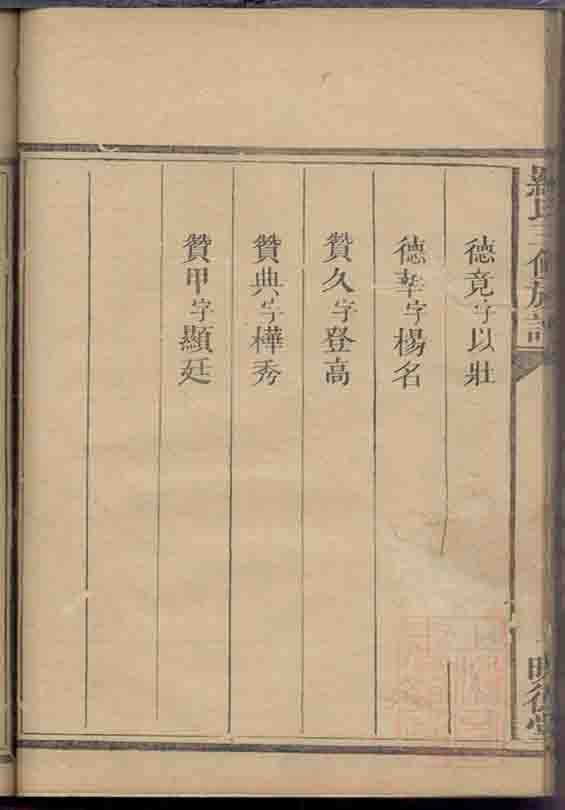 德竟字以壯
德犖字楊名
贊久字登高
贊典字樺秀
贊甲字顯廷
羅氏三修族譜